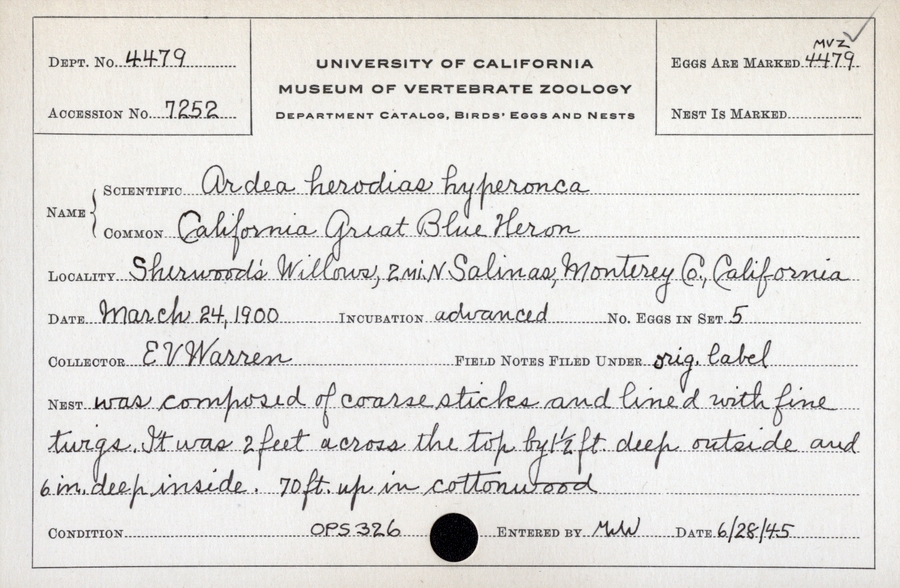 Dept. No. 4479
Accession No. 7252
UNIVERSITY OF CALIFORNIA
MUSEUM OF VERTEBRATE ZOOLOGY
Department Catalog, Birds' Eggs and Nests
MVZ
Eggs Are Marked 4479
Nest Is Marked
Name
Scientific Ardea herodias hyperonca
Common California Great Blue Heron
Locality Sherwood's Willows, 2 mi. N Salinas, Monterey Co., California
Date March 24, 1900 Incubation advanced No. Eggs in Set 5
Collector E V Warren Field Notes Filed Under orig. label
Nest was composed of coarse sticks and lined with fine
twigs. It was 2 feet across the top by 1½ ft. deep outside and
6 in. deep inside. 70 ft. up in cottonwood
Condition OPS 326 Entered by Date 6/28/45